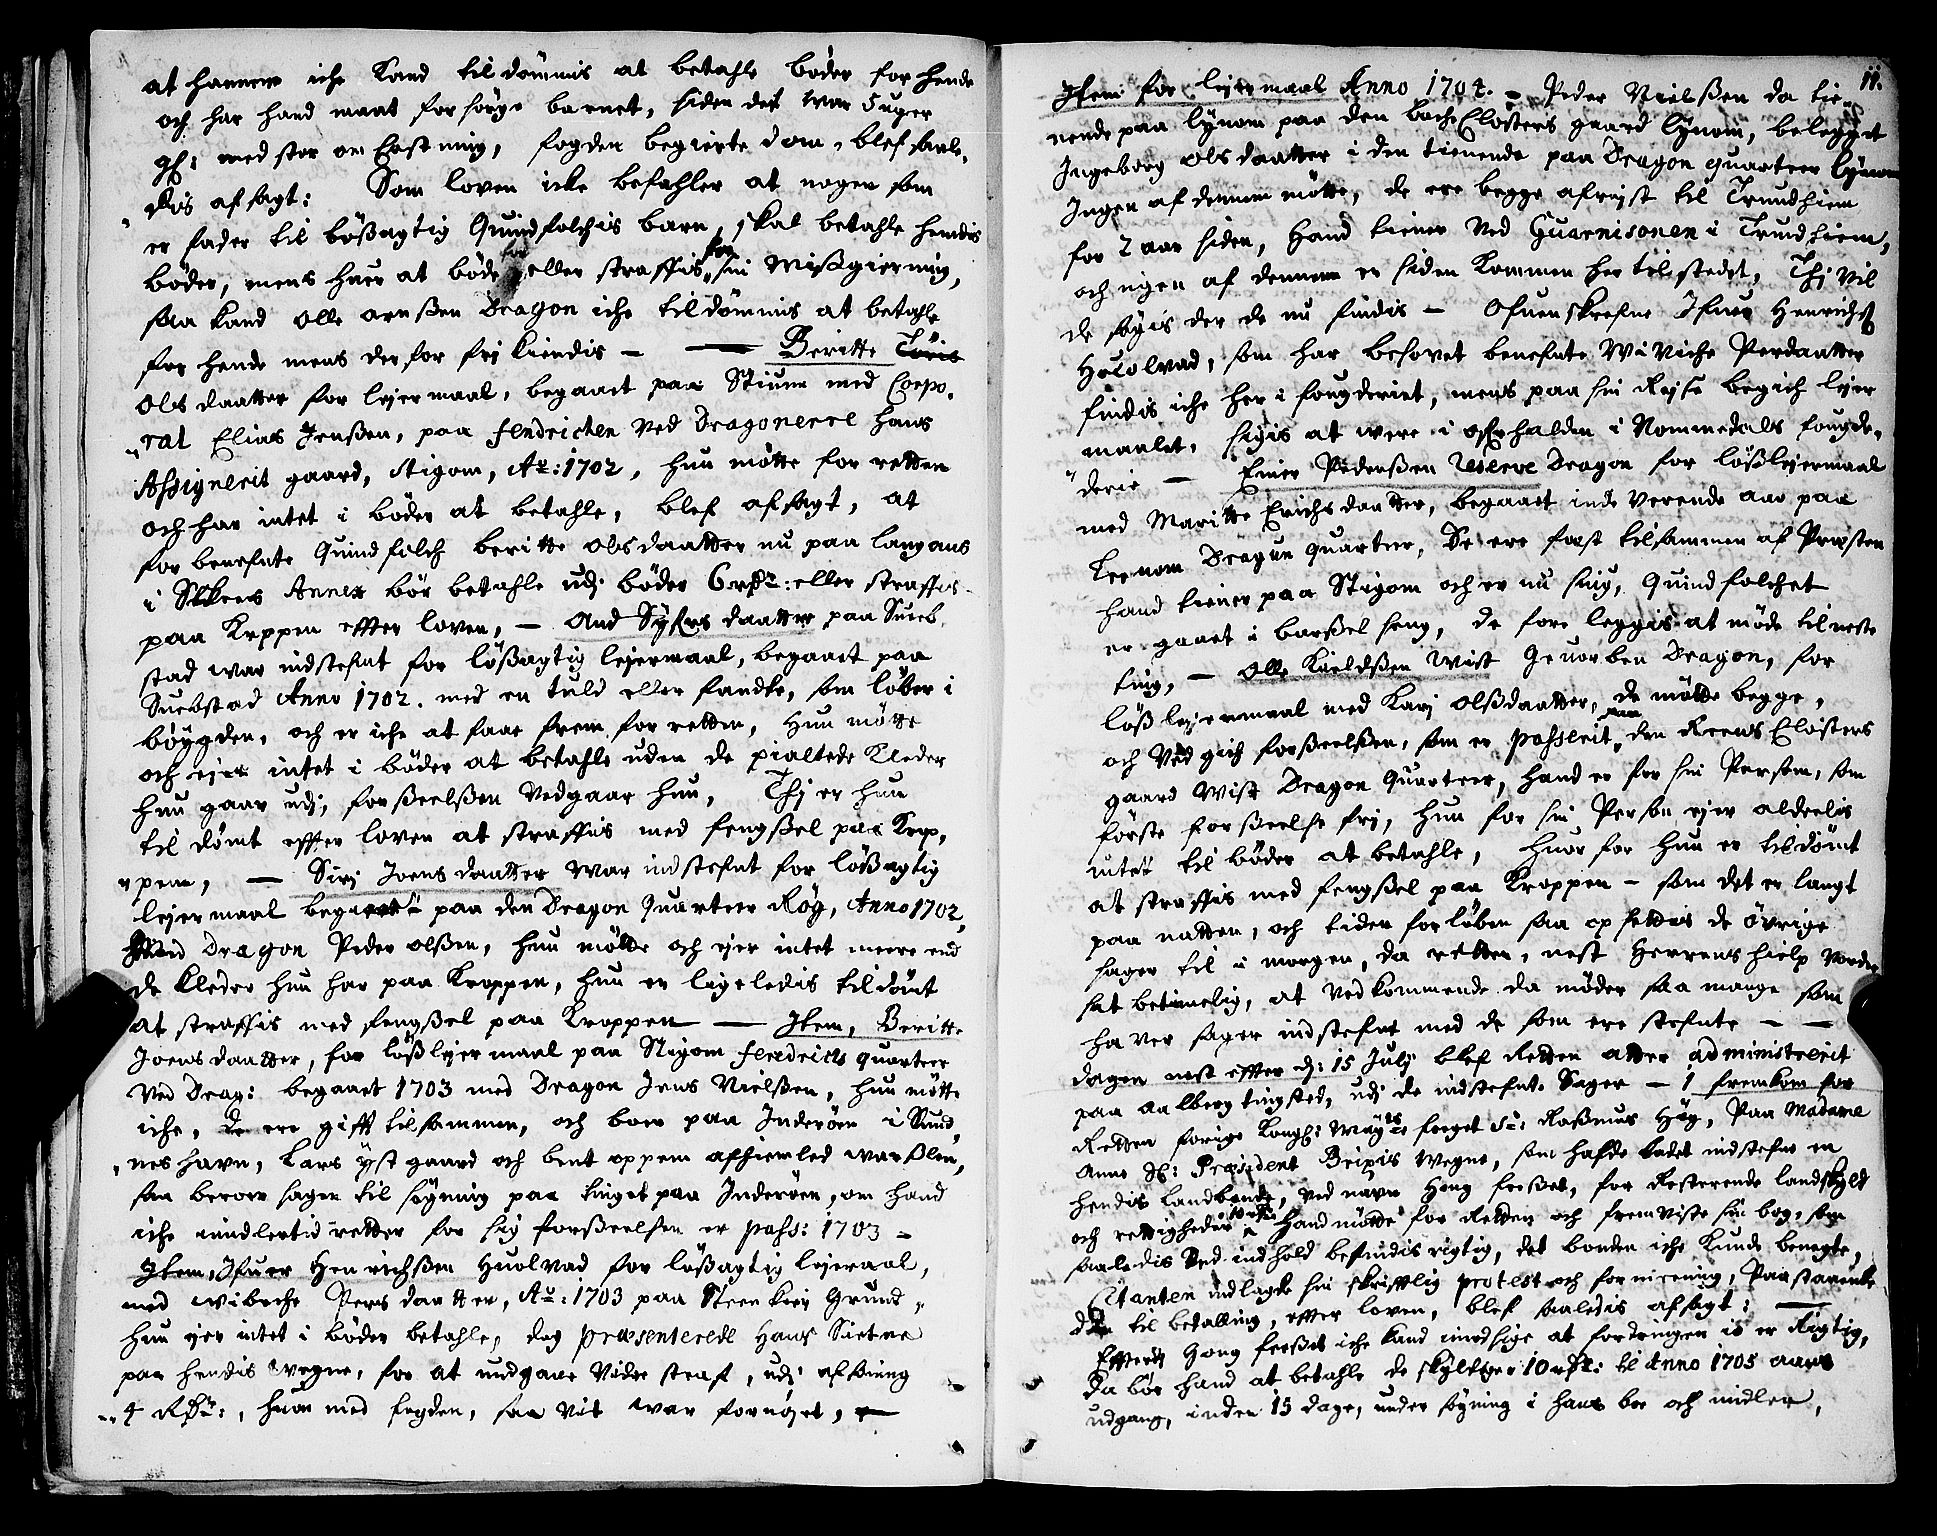 at hannem iche Kand tildømmis at betahle bøder for hende
och har hand maat forsørge barnet, siden det war 5 uger
gl: med stor om Costning, fogden begierte dom, blef saale„
„dis afsagt: Som loven iche befahler at nogen som
er fader til løßagtig Quindfolchis barn, skal betahle hendis
bøder, mens huer at bøde for eller straffis for sin Mißgierning,
saa kand olle arnßen Dragon iche tildømmis at betahle
for hende mens derfor frj kiendis — — Beritte
Olsdaatter for lejermaal, begaaet paa Stiume med Corpo„
„ral Elias Jenßen, paa fendrichen ved Dragonerne hans
Assignerit gaard, Stigom, Ao: 1702, hun møtte for retten
och har intet i bøder at betahle, blef afsagt, at
forbenefnte Quindfolch beritte olsdaatter nu paa langaas
i Annex bør betahle udj bøder 6 rdr: eller straffis
paa Kroppen effter loven, — And Syfersdaatter paa Sueb„
stad war indstefnt for løßagtig lejermaal, begaaet paa
Suebstad Anno 1702. med en tuld eller fandte, som løber i
bøygden, och er iche at faae frem for retten, hun møtte
och ejer intet i bøder at betahle uden de pialtede Kleder
hun gaar udj, forßeelßen vedgaar hun, Thj er hun
til dømt effter loven at straffis med fengßel paa Krop„
„pen, — Sirj Joensdaatter war indstefnt for løßagtig
lejermaal begaaet paa den Dragon Quarteer Røg, Anno 1702,
Med Dragon Peder olßen, hun møtte och ejer intet meere end
de kleder hun har paa Kroppen, hun er ligeledis tildømt
at straffis med fengßel paa Kroppen — Item, Beritte
Joensdaatter, for løßlejermaal paa Stigom fendrichs quarteer
ved Drag: begaaet 1703 med Dragon Jens Nielßen, hun møtte
iche, de ere gifft tilsammen, och boer paa Inderøen i Sund„
„nes havn, Lars øst gaard och bent oppem afhiemled warßlen,
saa beroer sagen til søgning paa tinget paa Inderøen, om hand
iche imidlertid retter for sig forßeelsen er pass: 1703 —
Item, Ifuer Henrichßen Huolvad for løßagtig lejermaal,
med wibeche Persdaatter, Ao: 1703 paa Steenkier Grund„
hun ejer intet i bøder betahle, dog præsenterede Hans Sætne
paa hendis wegne, for at undgaae vidre straf, udj afsoning
4 Rdr:, huor med fogden, saa vit war fornøjet,
11.
Item for lejermaal Anno 1704. — Peder Nielßen da tie„
nende paa Lynom paa den bache Closters gaard Lynom, belegget
Ingeborg olsdaatter i den tienende paa Dragon quarteer Lynom
Ingen af dennem møtte, de ere begge afrejst til Trundhiem
for 2 aar siden, hand tiener ved Guarnisonen i Trundhiem,
och ingen af dennem er siden kommen her til stedet, Thj vil
de søgis der de nu findis — Ofuenskrefne Ifuer Henrichß
Huolvad, som har besovet benefnte Wiviche Persdaatter
findis iche her i fougderiet, mens paa sin Rejse begich lejer
maalet, sigis at were i ofverhalden i Nommedals fougde„
„derie — Einer Pederßen reserve Dragon for løßlejermaal
med Maritte Erichsdaatter, begaaet inde verende aar paa
Dragun quarteer, De ere fæst tilsammen af Præsten
hand tiener paa Stigom och er nu siug, Quindfolchet
er gaaet i barßel seng, de fore leggis at møde til neste
ting, — Olle Kieldßen Wist Geuorben Dragon, for
løßlejermaal med Karj olßdaatter, de møtte begge,
och vedgich forßeelßen, som er passerit paa den Reens Closters
gaard Wist Dragon Quarteer, hand er for sin Person, som
første forßeelse frj, hun for sin Person ejer aldeelis
intet til bøder at betahle, huorfor hun er tildømt
at straffis med fengßel paa Kroppen — som det er langt
paa natten, och tiden forløben saa opsettis de øvrige
sager til i morgen, da retten, nest Herrens hielp vorder
sat betimelig, at vedkommende da møder saa mange som
haver sager indstefnt med de som ere stefnte — —
dagen nest effter d: 15 Julj blef Retten atter administrerit
paa aalberg tingsted, udj de indstefnte Sager — 1 fremkom for
Retten forige Kongl: Mayts foget Sr: Raßmus Høg, paa Madame
Anne Sl: Præsident wegne, som hafde ladet indstefne en
hendis landbonde, ved navn Gong feeßet, for Resterende landskyld
och rettigheder 10 rdr, Hand møtte for Retten och fremviste sin bog, som
saaledis ved indhold befindis rigtig, det bonden iche kunde benegte,
Citanten indlagde sin skrifftlig protest och formeening, Paastaaende
dom til betalling, effter loven, blef saaledis afsagt: —
Efftersom Gong feeßet iche kand imodsige at fordringen jo er Rigtig,
da bør hand at betahle de skyldige 10 rdr: til Anno 1705 aars
udgang, inden 15 dage, under søgning i hans boe och midler,